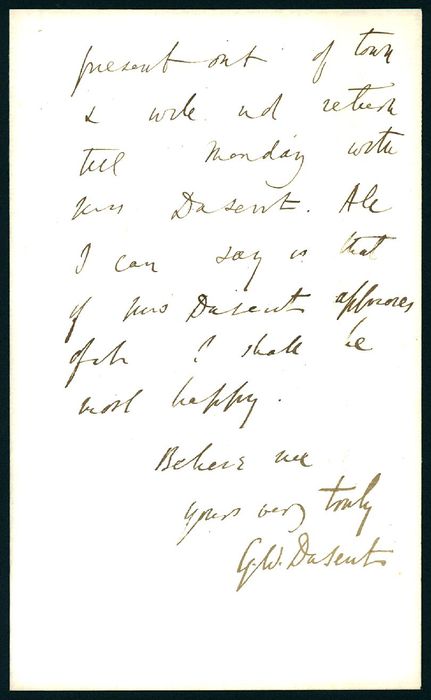 present out of town
& will not return
till Monday with
Mrs Dasent. All
I can say is that
if Mrs Dasent approves
of it I shall be
most happy.
Believe me
yours very truly
G.W. Dasent